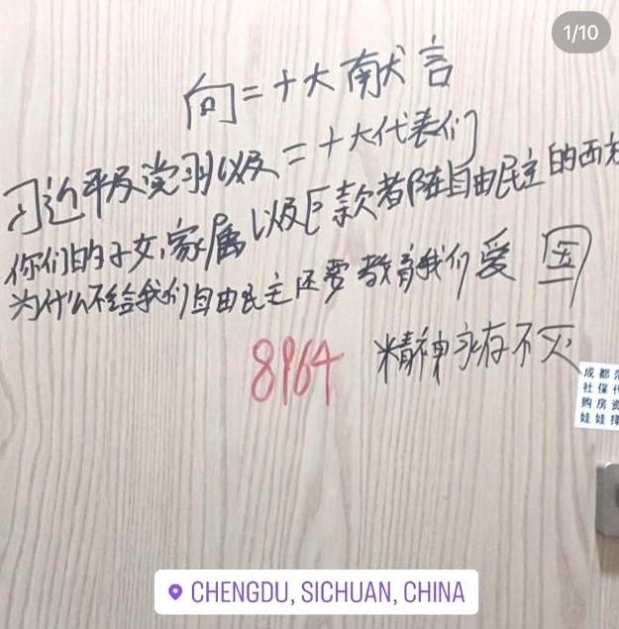 1/10
向二十大献言
习近平及党羽以及二十大代表们
你们的子女,家属以及巨款都在自由民主的西方
为什么不给我们自由民主还要教育我们爱国
8964 精神永存不灭
成都
社保代
购房资
娃娃择
CHENGDU, SICHUAN, CHINA